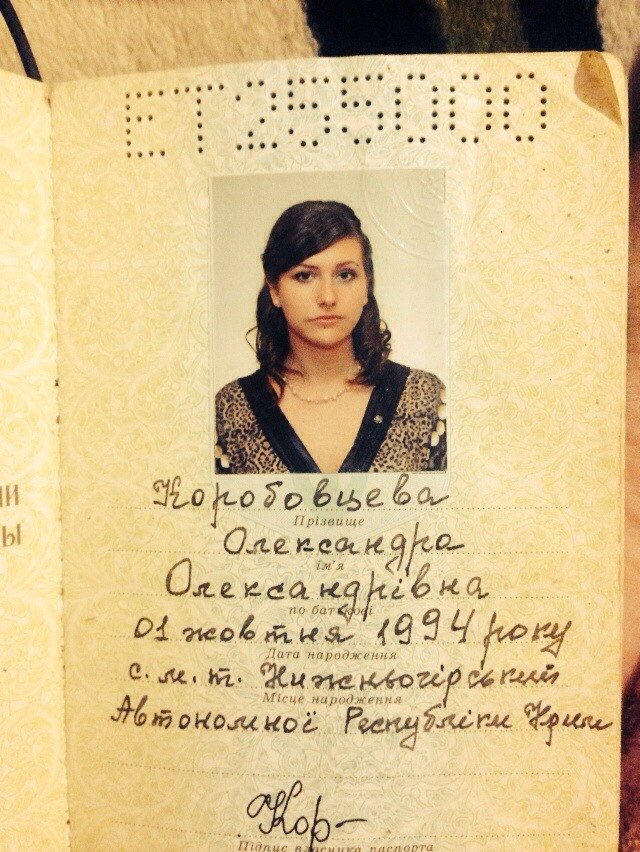 ЕТ255000
Коробовцева
Прізвище
Олександра
ім'я
Олександрівна
по батькові
01 жовтня 1994 року
Дата народження
с.м.т. Нижньогірський
Місце народження
Автономної Республіки Крим
Кор-
Підпис власника паспорта